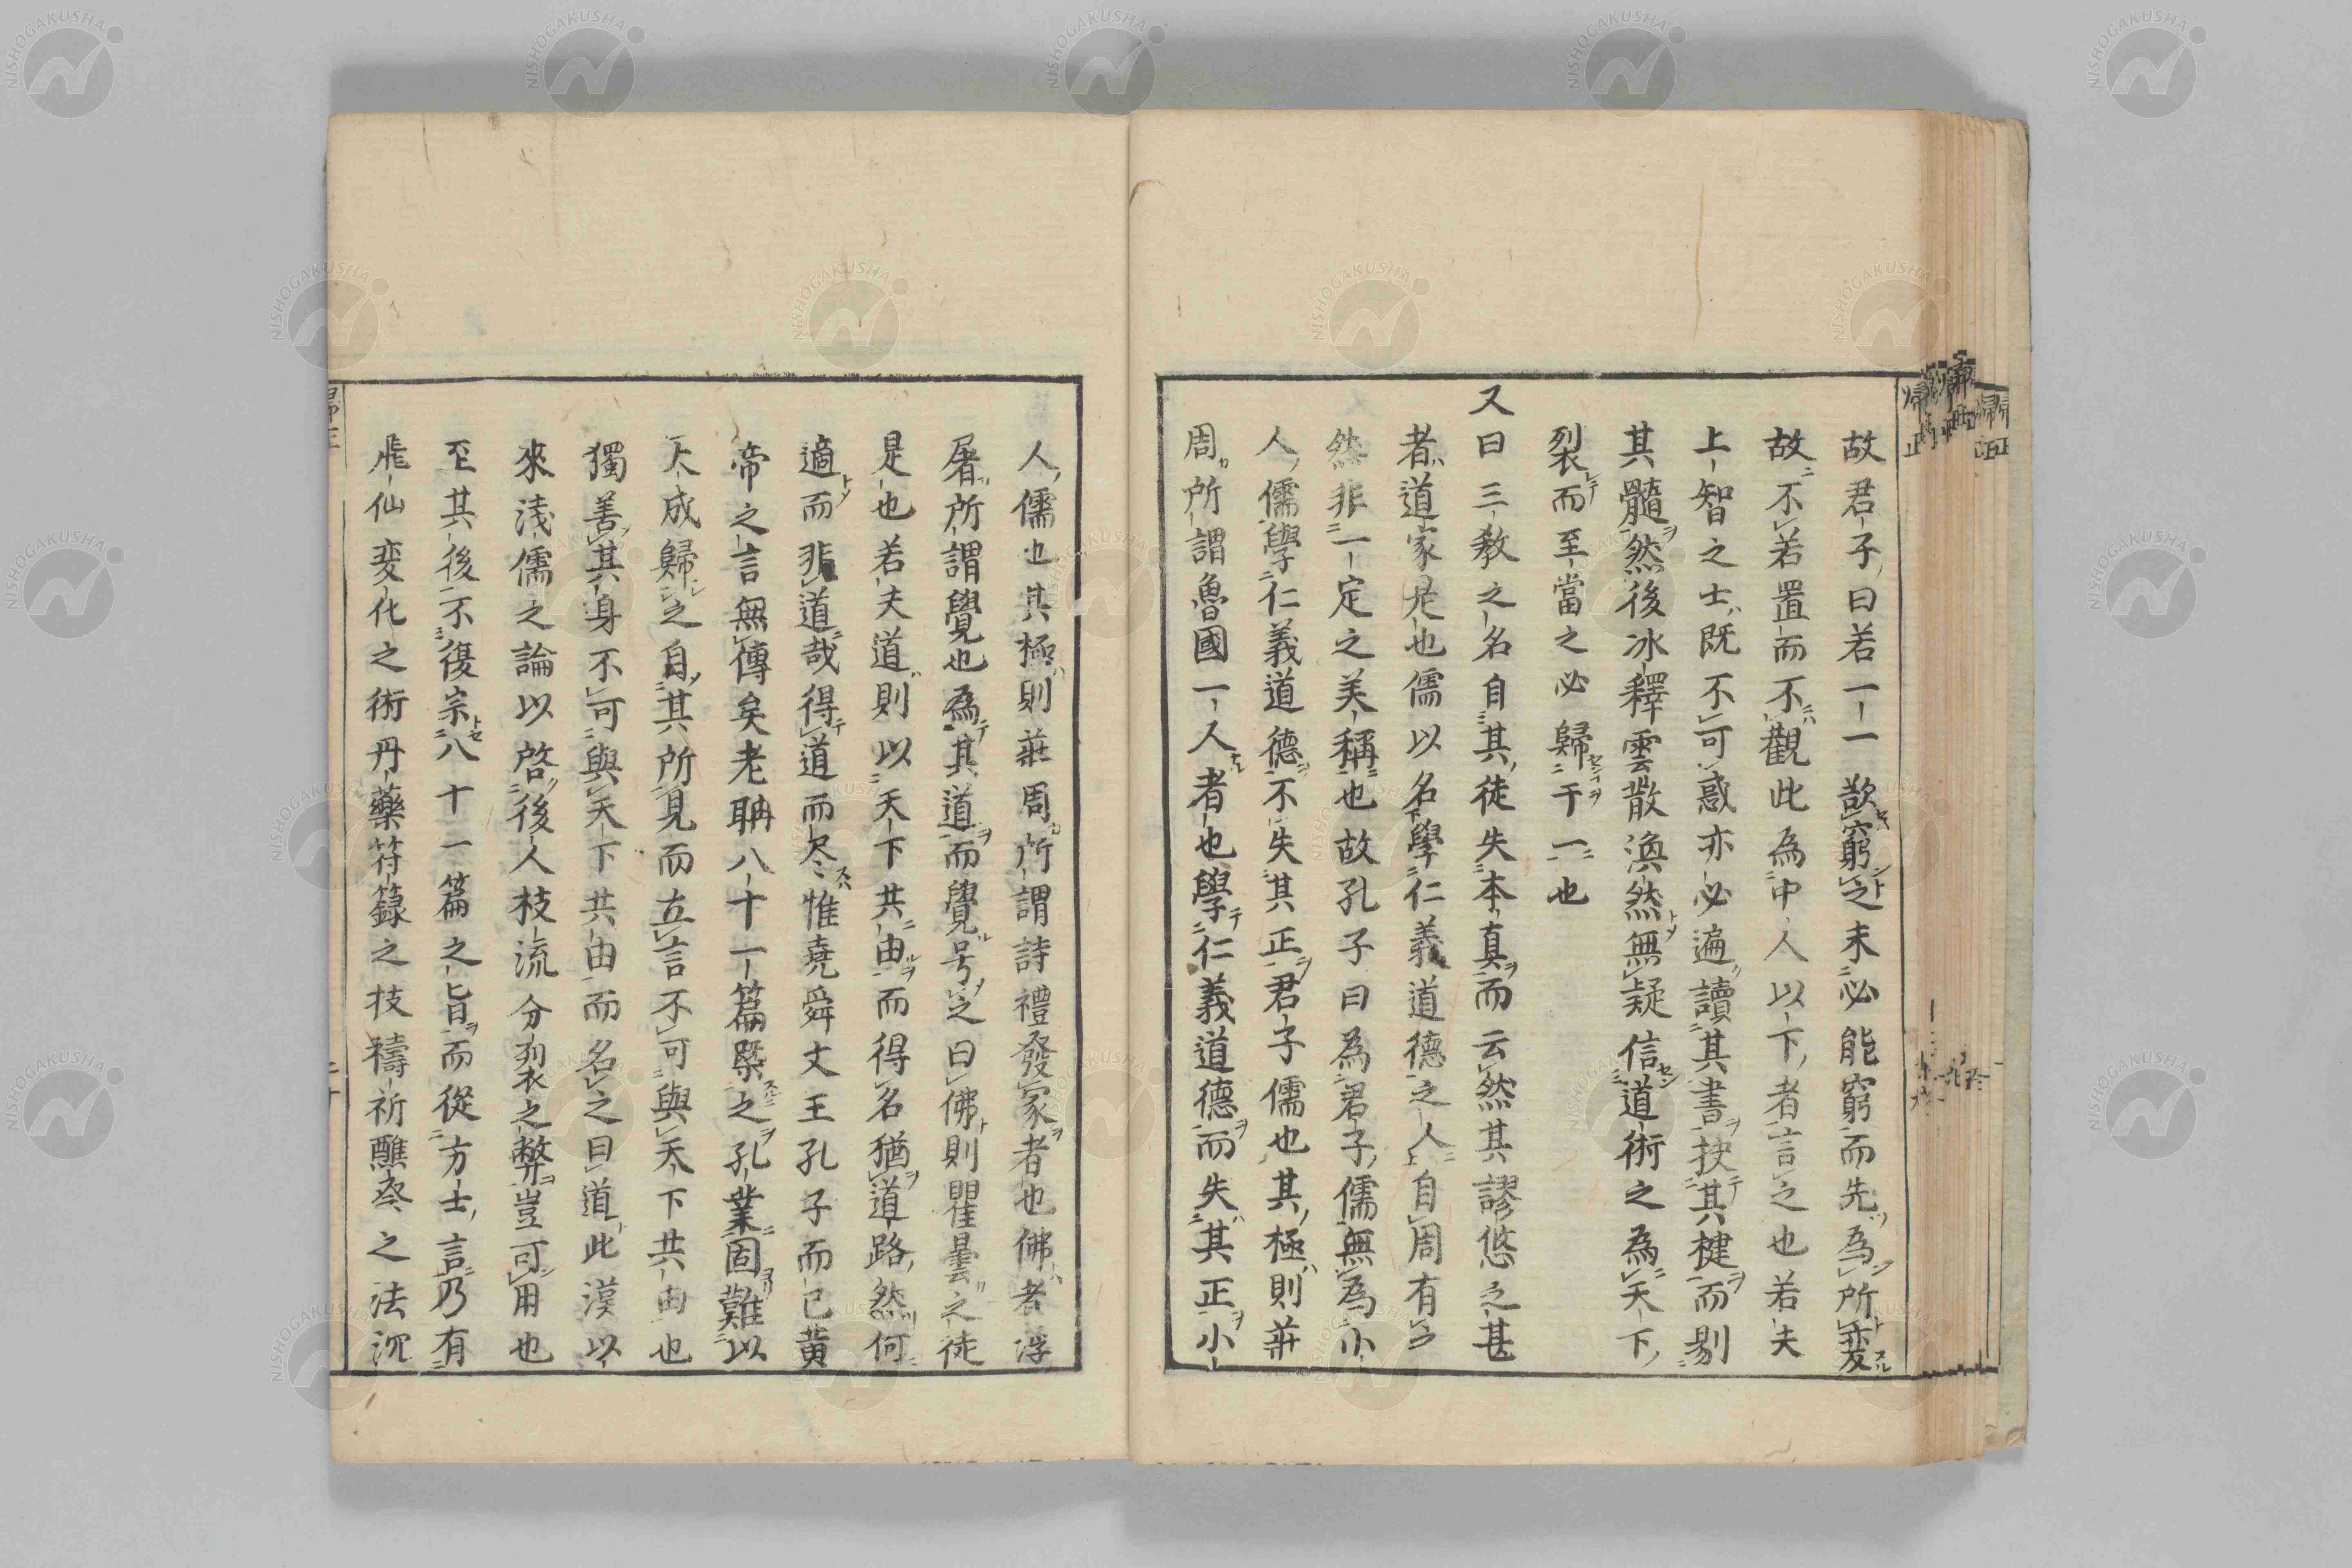 故君子曰若一一欲窮之未必能窮而先為所変
故不若置而不觀此為中人以下者言之也若夫
上智之士既不可惑亦必遍讀其書抉其楗而剔
其髓然後冰釋雲散渙然無疑信道術之為天下
裂而至當之必歸于一也
又曰三教之名自其徒失本真而云然其謬悠之甚
者道家是也儒以名學仁義道德之人自周有之
然非一定之美稱也故孔子曰為君子儒無為小
人儒學仁義道德不失其正君子儒也其極則莊
周所謂魯國一人者也學仁義道德而失其正小
人儒也其極則莊周所謂詩禮發冢者也佛者浮
屠所謂覺也為其道而覺号之曰佛則瞿曇之徒
是也若夫道則以天下共由而得名猶道路然何
適而非道哉得道而尽惟堯舜文王孔子而已黃
帝之言無傳矣老聃八十一篇槩之孔業固難以
大成歸之自其所見而立言不可與天下共由也
獨善其身不可與天下共由而名之曰道此漢以
來淺儒之論以啓後人枝流分裂之弊豈可用也
至其後不復宗八十一篇之旨而從方士言乃有
飛仙変化之術丹藥符籙之技禱祈醮祭之法沉
帰正
NISHOGAKUSHA